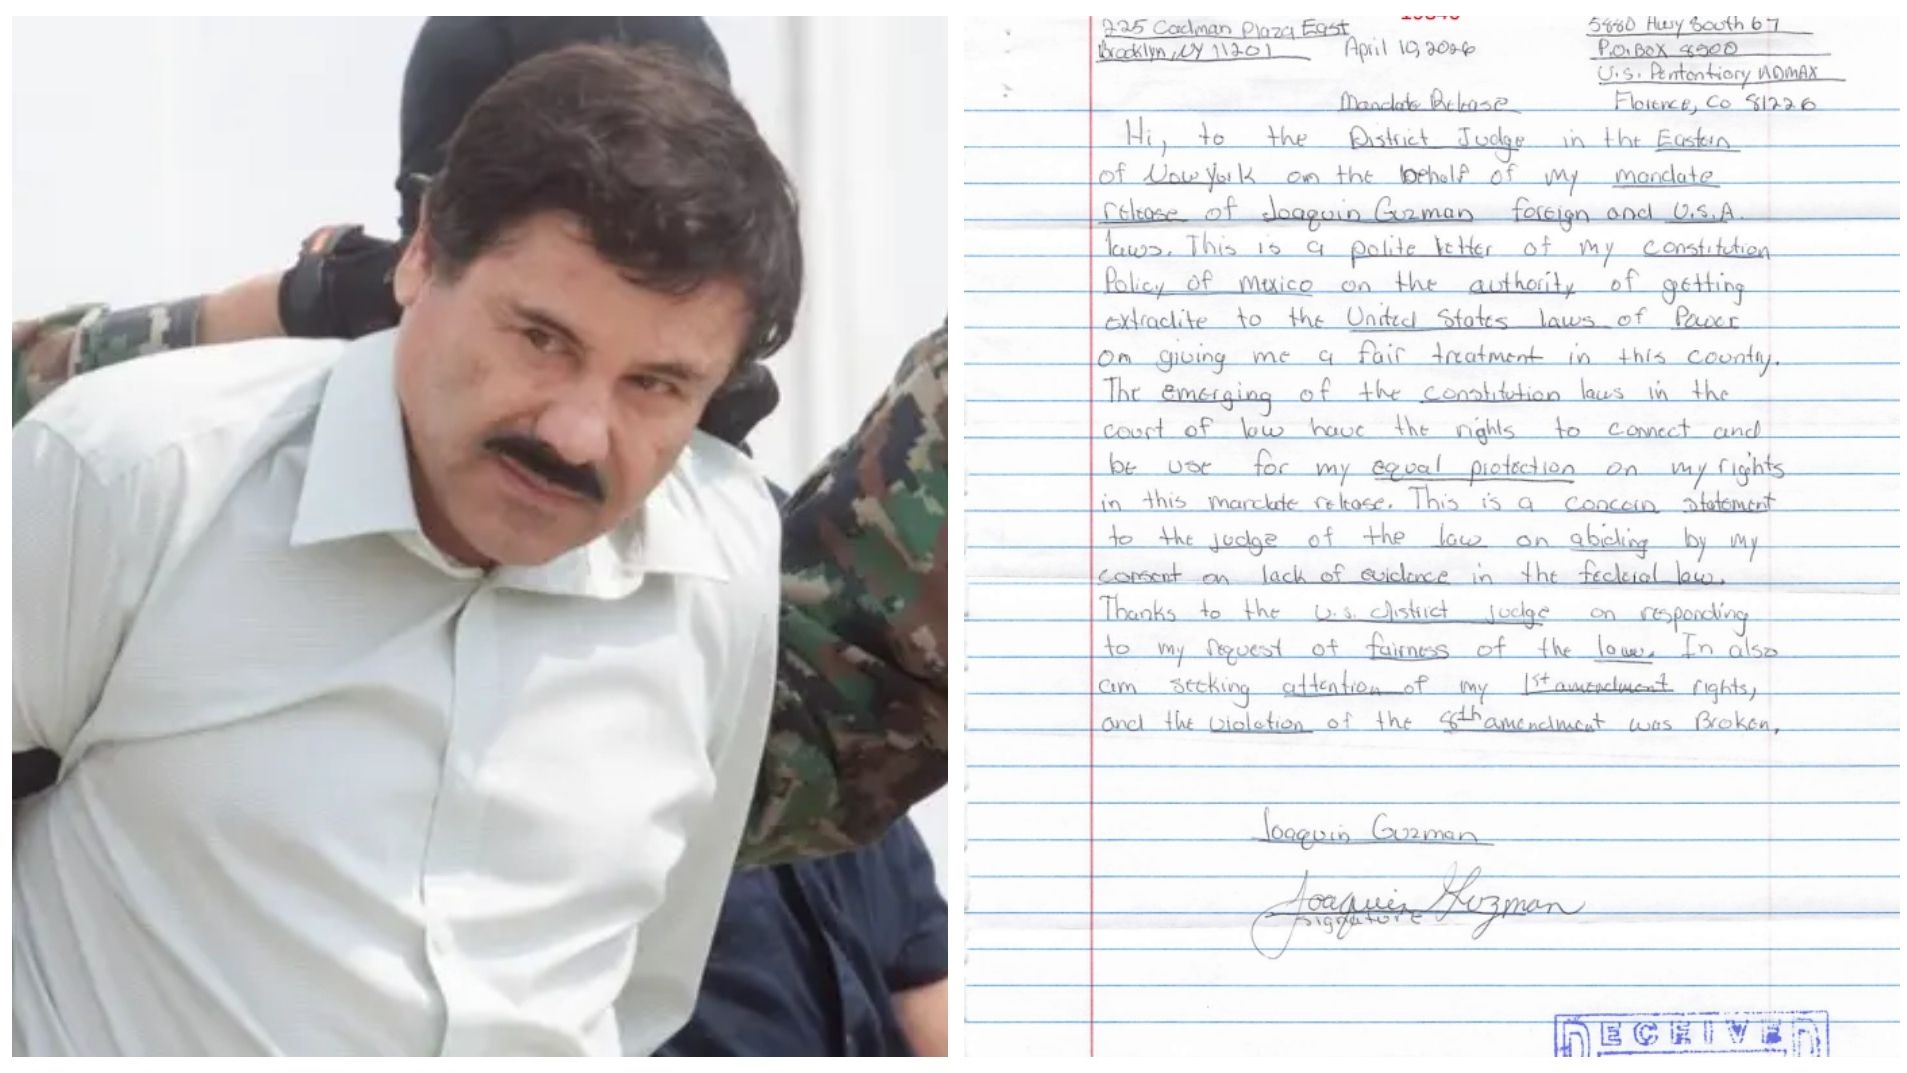 225 Cadman Plaza East
Brooklyn, NY 11201
April 10, 2026
5880 Hwy South 67
P.O. Box 8500
U.S. Pententiory ADMAX
Florence, Co 81226
Mandate Release
Hi, to the District Judge in the Eastern
of New York on the behalf of my mandate
release of Joaquin Guzman foreign and U.S.A.
laws. This is a polite letter of my constitution
Policy of Mexico on the authority of getting
extradite to the United States laws of Power
on giving me a fair treatment in this country.
The emerging of the constitution laws in the
court of law have the rights to connect and
be use for my equal protection on my rights
in this mandate release. This is a concern statement
to the judge of the law on abiding by my
consent on lack of evidence in the federal law.
Thanks to the U.S. district judge on responding
to my request of fairness of the law. In also
am seeking attention of my 1st amendment rights,
and the violation of the 8th amendment was Broken.
Joaquin Guzman
Joaquin Guzman
signature
RECEIVED